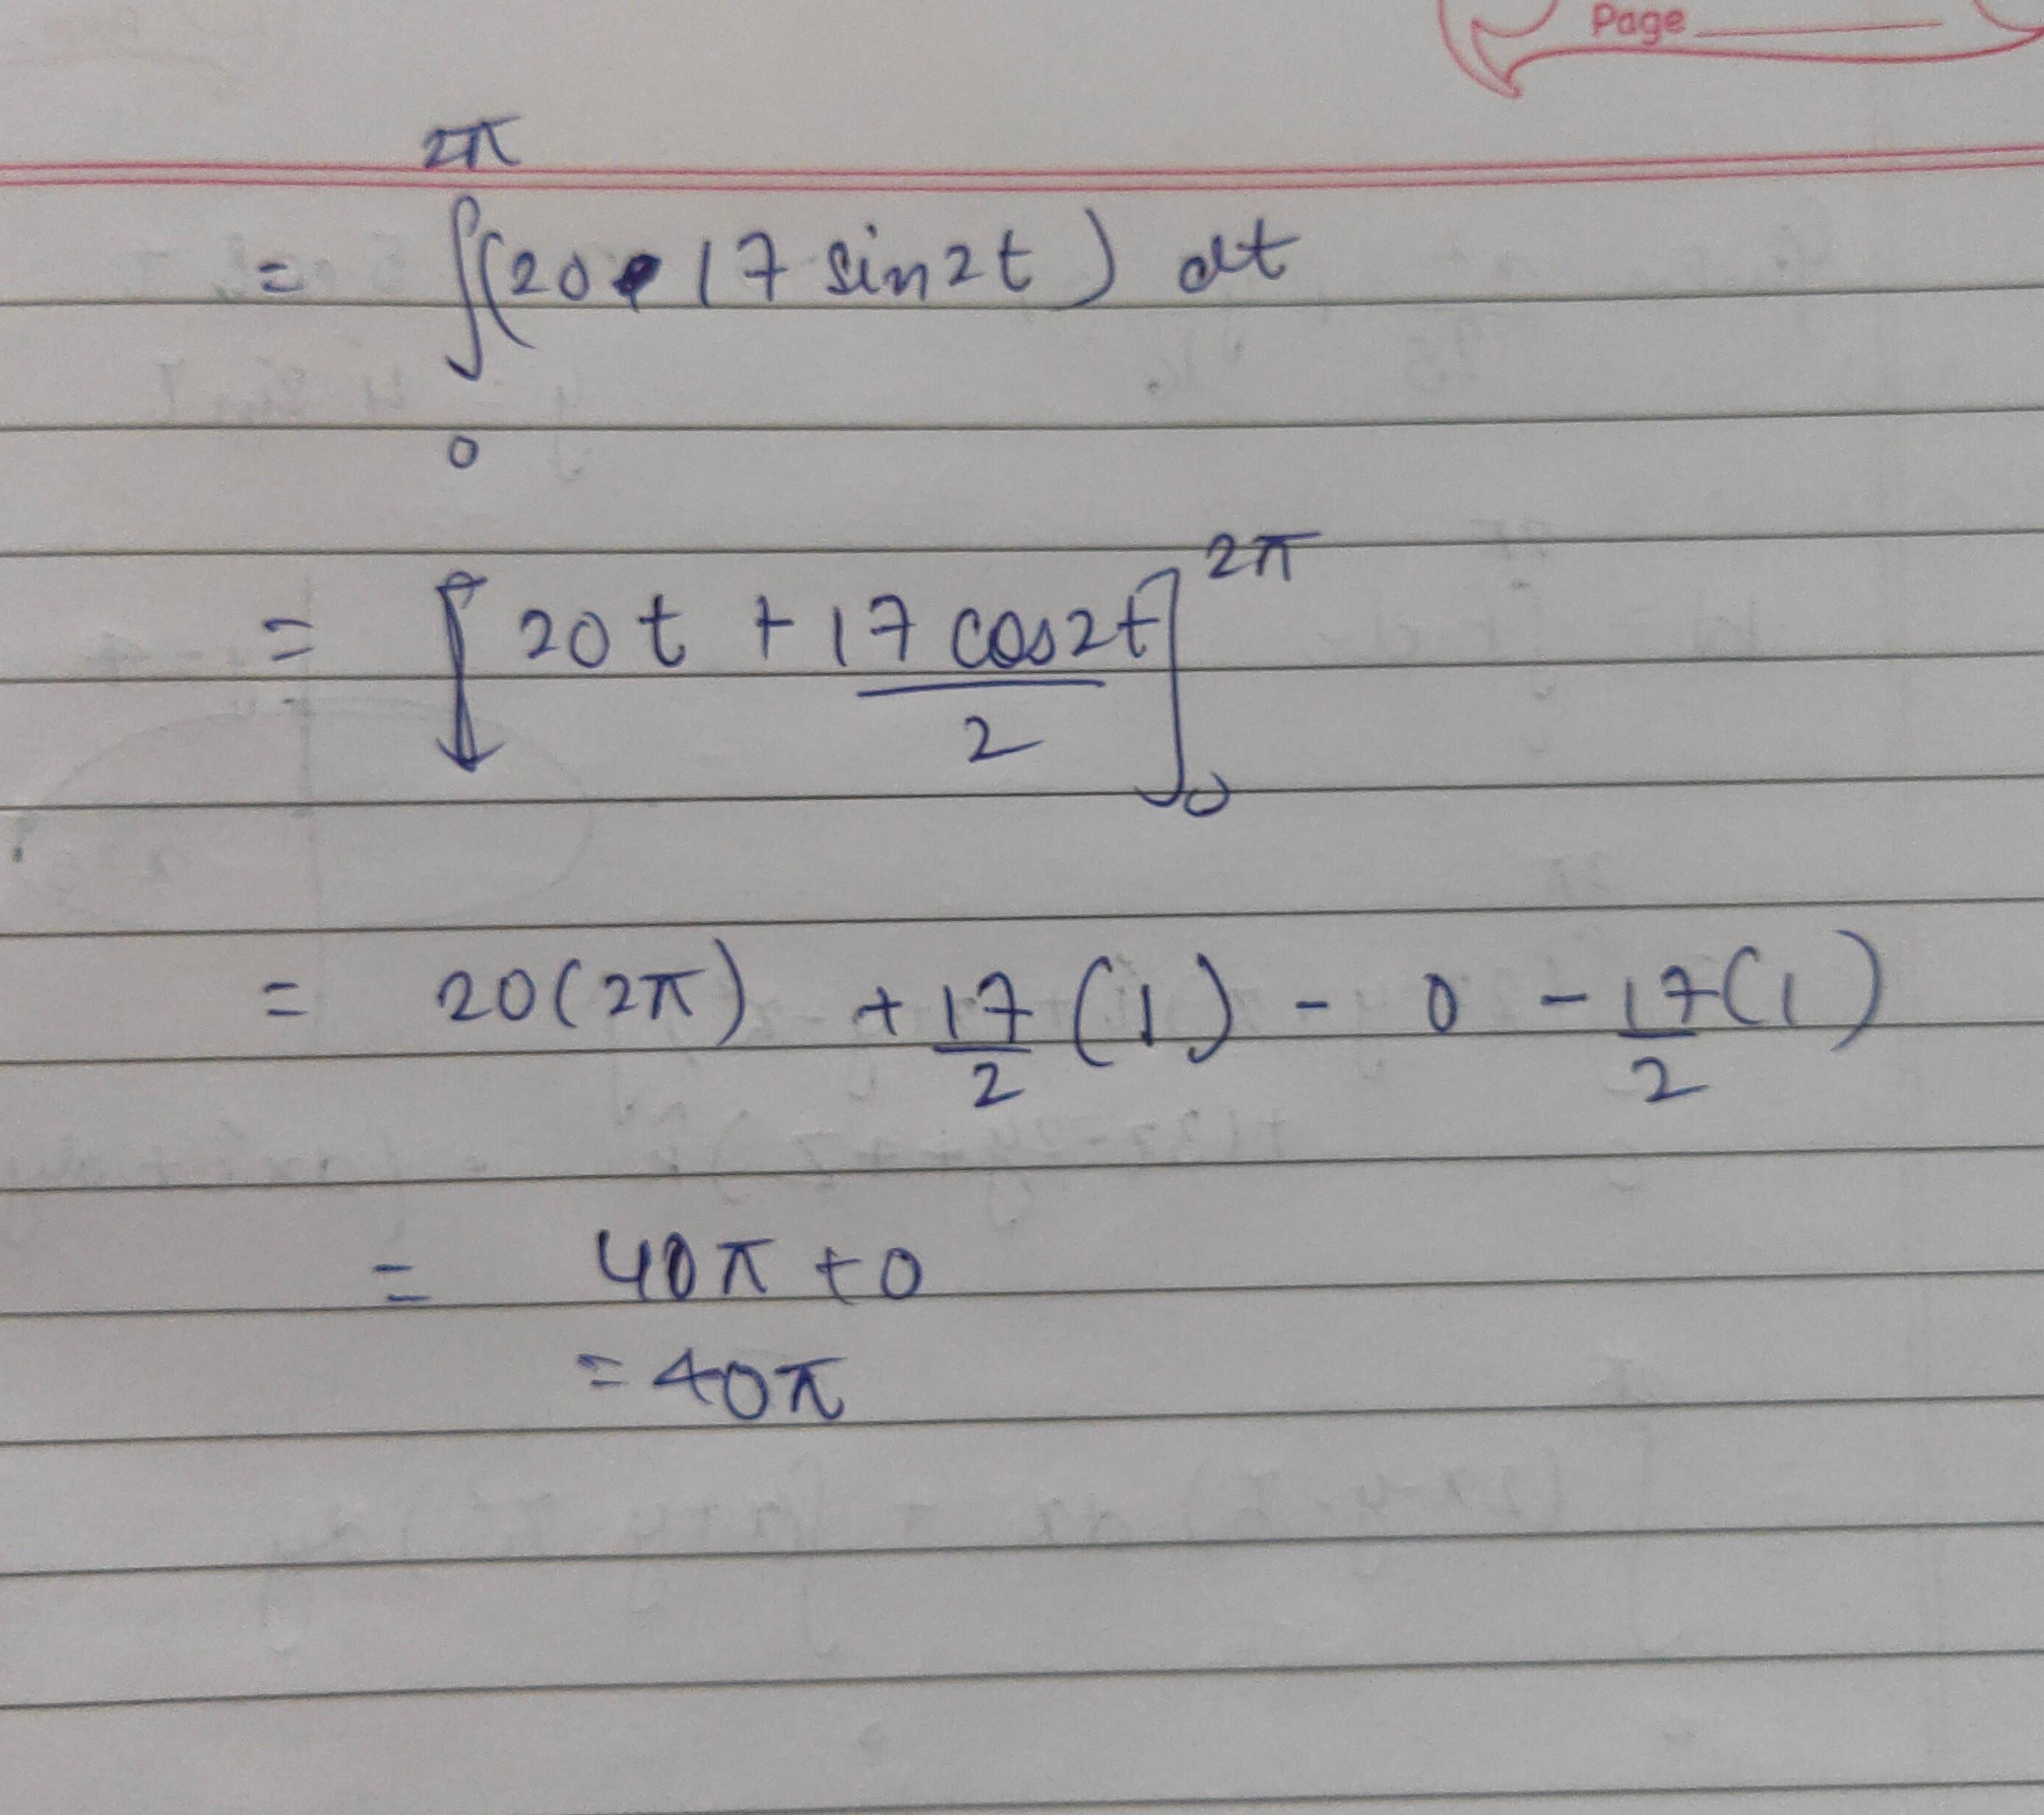 Page
2π
= ∫(20 • 17 sin2t) dt
0
= [ 20t + 17 cos2t / 2 ]₀^2π
= 20(2π) + 17/2 (1) - 0 - 17/2 (1)
= 40π + 0
= 40π